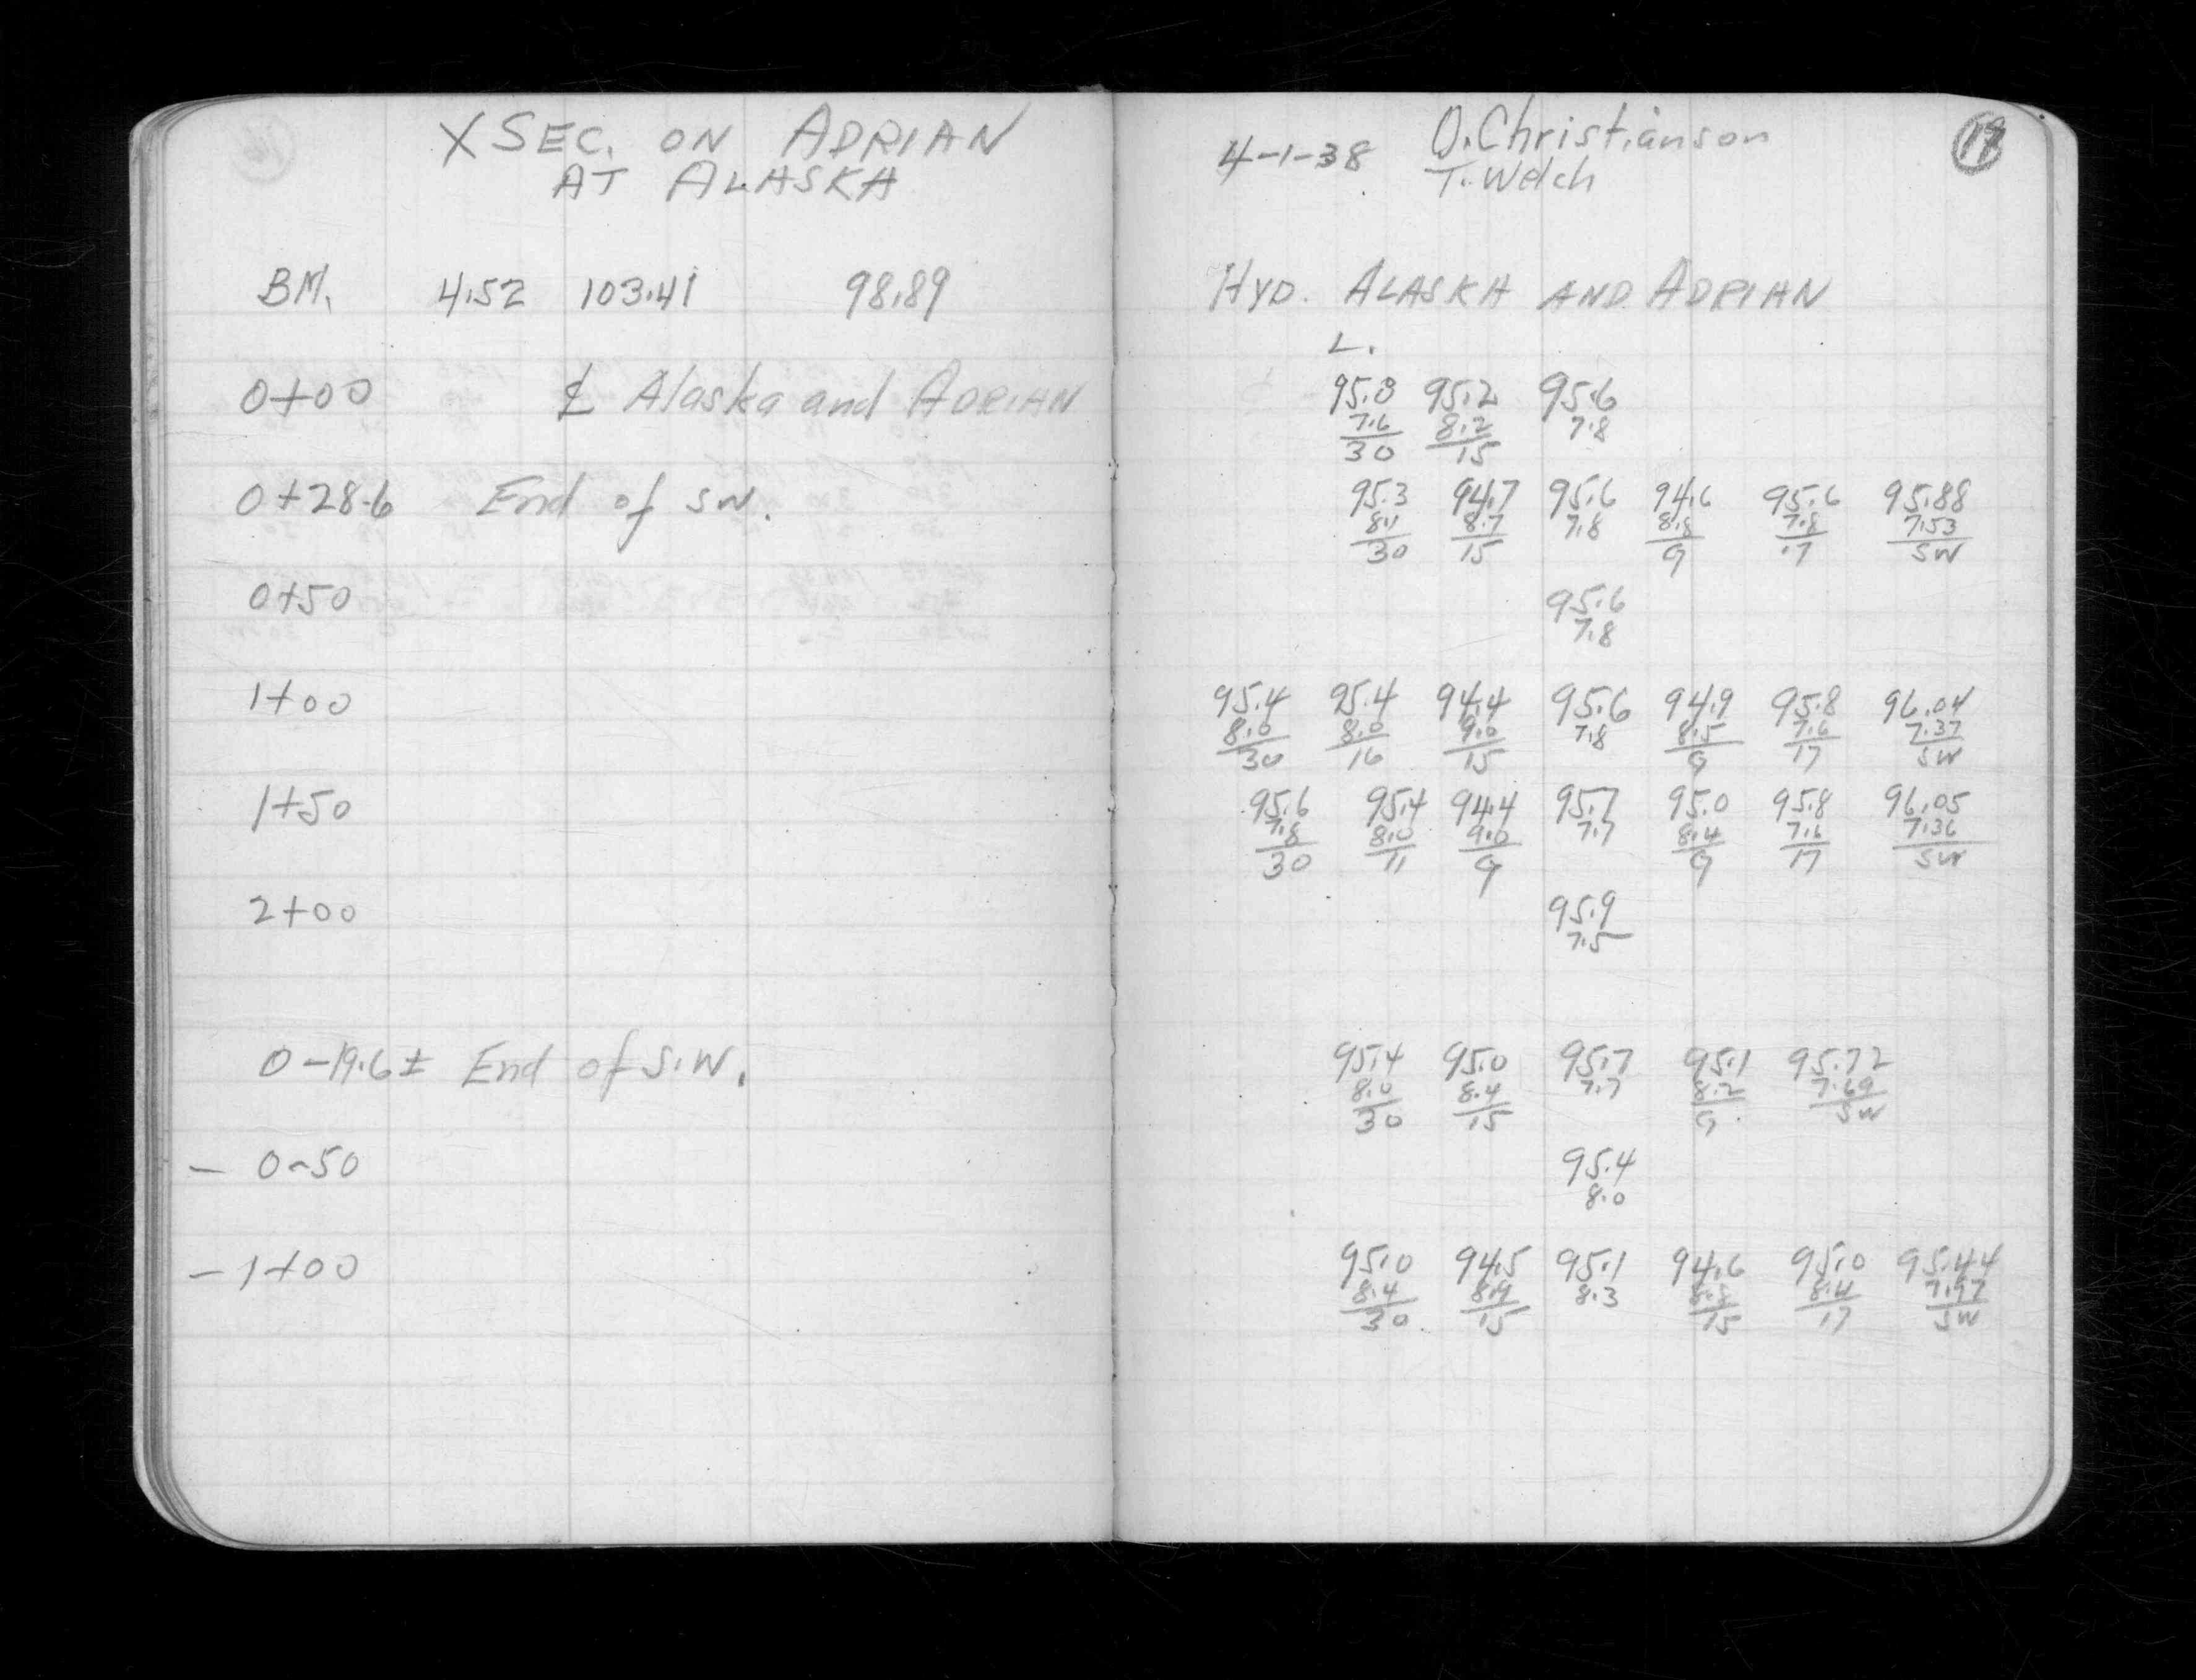 X SEC. ON ADRIAN
AT ALASKA
BM. 4.52 103.41 98.89
0+00 ℄ Alaska and ADRIAN
0+28.6 End of SW.
0+50
1+00
1+50
2+00
0-19.6± End of S.W.
- 0-50
- 1+00
4-1-38 O. Christianson
T. Welch
HYD. ALASKA AND ADRIAN
L.
95.8 95.2 95.6
7.6 8.2 7.8
30 15
95.3 94.7 95.6 94.6 95.6 95.88
8.1 8.7 7.8 8.8 7.8 7.53
30 15 9 17 SW
95.6
7.8
95.4 95.4 94.4 95.6 94.9 95.8 96.04
8.0 8.0 9.0 7.8 8.5 7.6 7.37
30 16 15 9 17 SW
95.6 95.4 94.4 95.7 95.0 95.8 96.05
7.8 8.0 9.0 7.7 8.4 7.6 7.36
30 11 9 9 17 SW
95.9
7.5
95.4 95.0 95.7 95.1 95.72
8.0 8.4 7.7 8.2 7.69
30 15 9 SW
95.4
8.0
95.0 94.5 95.1 94.6 95.0 95.44
8.4 8.9 8.3 8.8 8.4 7.97
30 15 15 17 SW